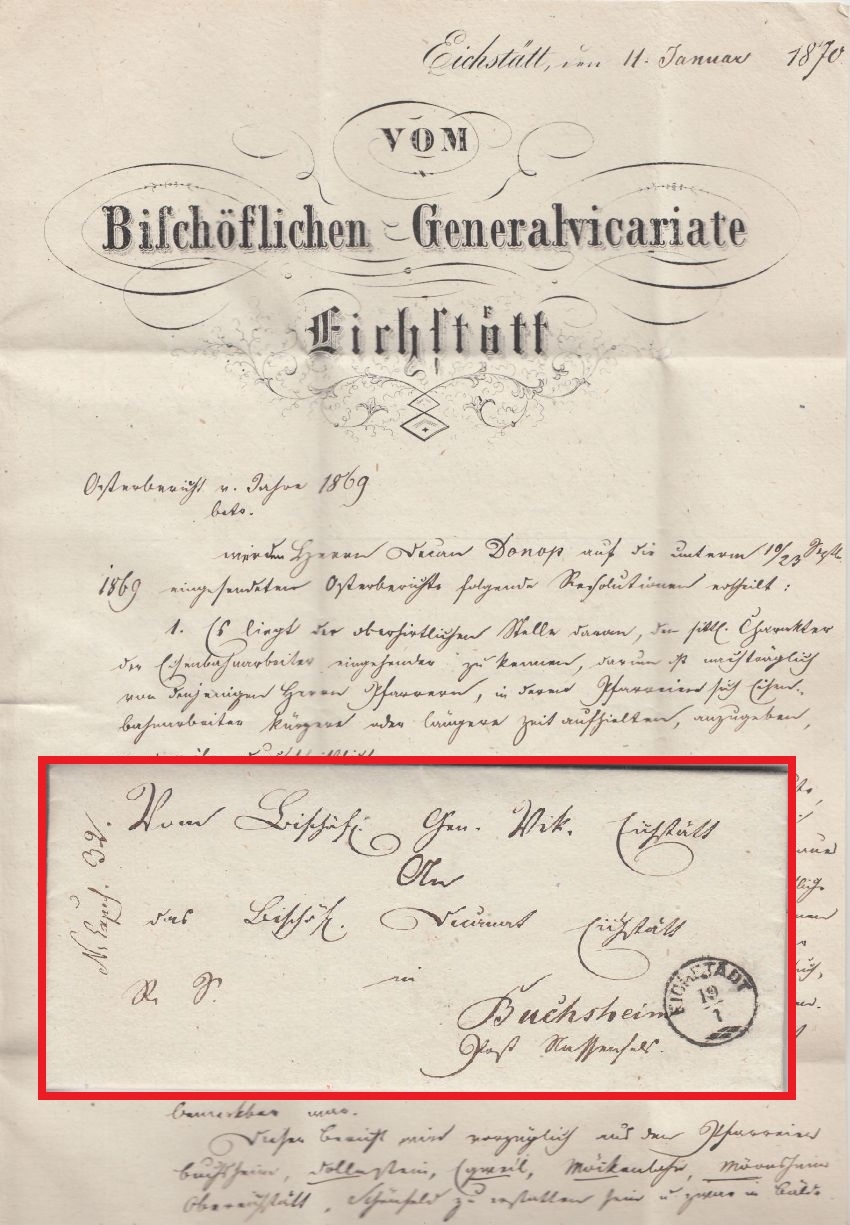 Eichstätt, den 11. Januar 1870
VOM
Biſchöflichen Generalvicariate
Eichſtätt
Osterbericht v. Jahre 1869
betr.
werden Herrn Decan Donop auf die unterm 10/23 Septb.
1869 eingesendeten Osterberichte folgende Resolutionen ertheilt:
1. Es liegt der oberhirtlichen Stelle daran, den sittl. Charakter
der Eisenbahnarbeiter eingehender zu kennen, darum ist nachträglich
von denjenigen Herrn Pfarrern, in deren Pfarreien sich Eisen-
bahnarbeiter kürzere oder längere Zeit aufhielten, anzugeben,
Vom Bischöfl. Gen. Vik. Eichstätt
An
das Bischöfl. Decanat Eichstätt
R. S. in
Buchsheim
Post Nassenfels.
N. Exped. 32.
EICHSTÄDT
19
1
bemerkbar war.
Dieser Bericht wird vorzüglich aus den Pfarreien
Buchsheim, Dollnstein, Egweil, Möckenlohe, Mörnsheim
Obereichstätt, Schönfeld zu erstatten sein u zwar in Bälde